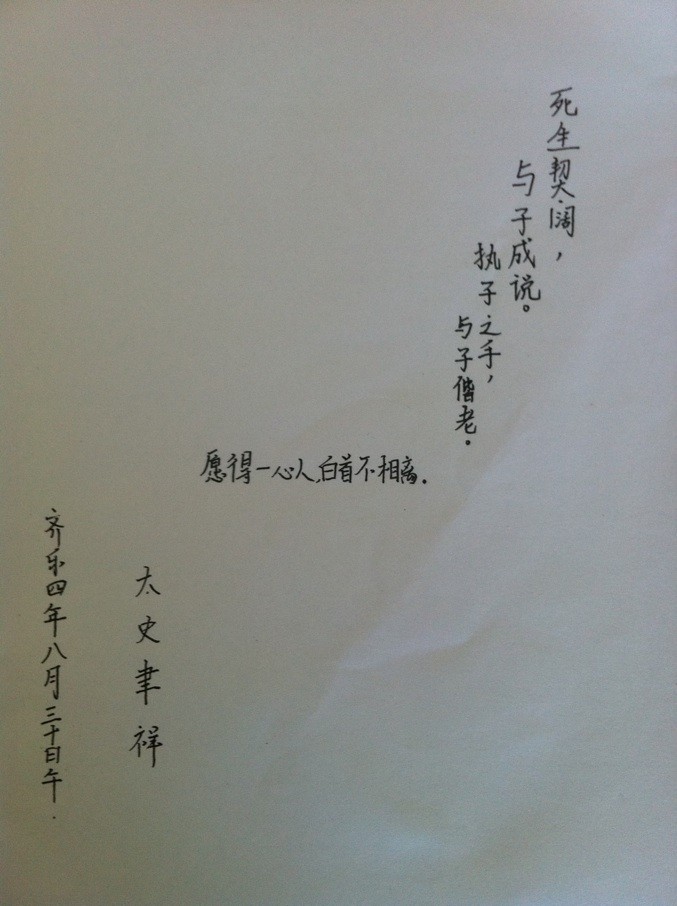 死生契阔，
与子成说。
执子之手，
与子偕老。
愿得一心人,白首不相离.
太史聿祥
齐乐四年八月三十日午.